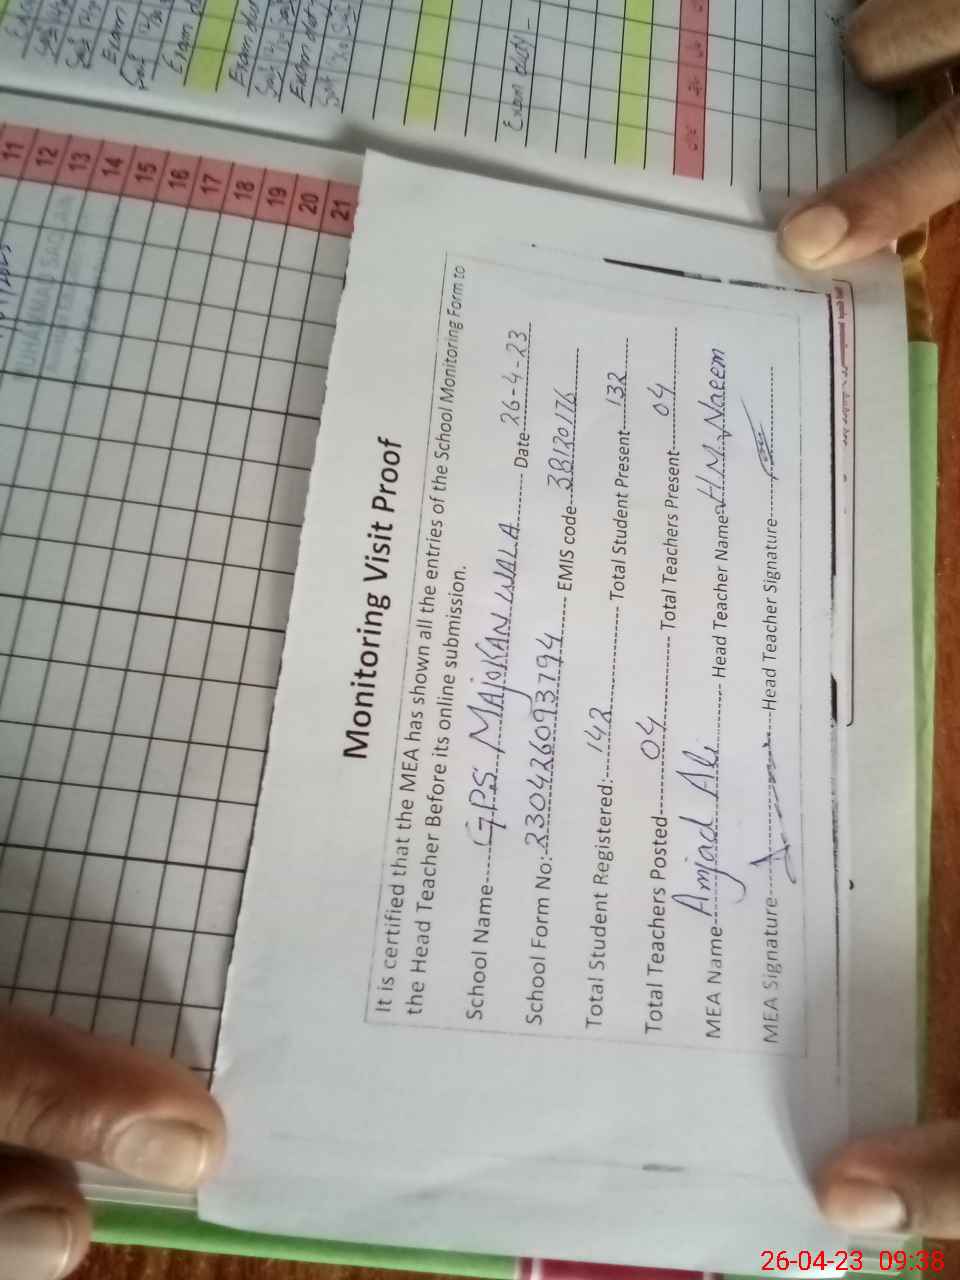 Monitoring Visit Proof
It is certified that the MEA has shown all the entries of the School Monitoring Form to
the Head Teacher Before its online submission.
School Name GPS MAJOKAN WALA Date 26-4-23
School Form No: 230426093794 EMIS code 38120176
Total Student Registered: 142 Total Student Present 132
Total Teachers Posted 04 Total Teachers Present 04
MEA Name Amjad Ali Head Teacher Name H.M. Naeem
MEA Signature Head Teacher Signature
11
12
13
14
15
16
17
18
19
20
21
Exam duty -
26-04-23 09:38